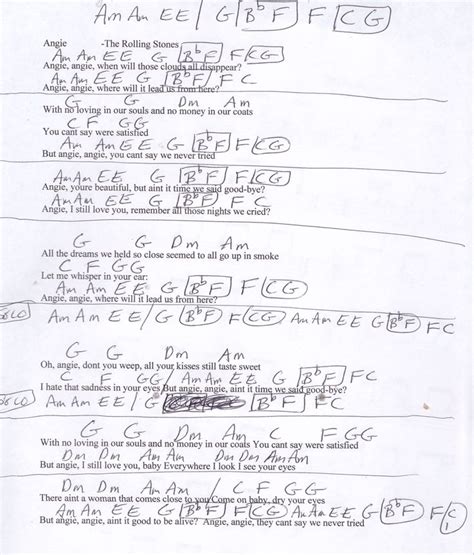 Am Am E E / G B♭ F F C G
Angie -The Rolling Stones
Am Am E E G B♭ F F C G
Angie, angie, when will those clouds all disappear?
Am Am E E G B♭ F / F C
Angie, angie, where will it lead us from here?
G G Dm Am
With no loving in our souls and no money in our coats
C F G G
You cant say were satisfied
Am Am E E G B♭ F F C G
But angie, angie, you cant say we never tried
Am Am E E G B♭ F F C G
Angie, youre beautiful, but aint it time we said good-bye?
Am Am E E G B♭ F F C
Angie, I still love you, remember all those nights we cried?
G G Dm Am
All the dreams we held so close seemed to all go up in smoke
C F G G
Let me whisper in your ear:
Am Am E E G B♭ F F C G
Angie, angie, where will it lead us from here?
SOLO Am Am E E / G B♭ F F C G Am Am E E G B♭ F F C
G G Dm Am
Oh, angie, dont you weep, all your kisses still taste sweet
C F G G / Am Am E E G B♭ F F C
I hate that sadness in your eyes But angie, angie, aint it time we said good-bye?
SOLO Am Am E E / G B♭ F F C
G G Dm Am C F G G
With no loving in our souls and no money in our coats You cant say were satisfied
Dm Dm Am Am Dm Dm Am Am
But angie, I still love you, baby Everywhere I look I see your eyes
Dm Dm Am Am / C F G G
There aint a woman that comes close to you Come on baby, dry your eyes
Am Am E E G B♭ F F C G Am Am E E G B♭ F F C
But angie, angie, aint it good to be alive? Angie, angie, they cant say we never tried